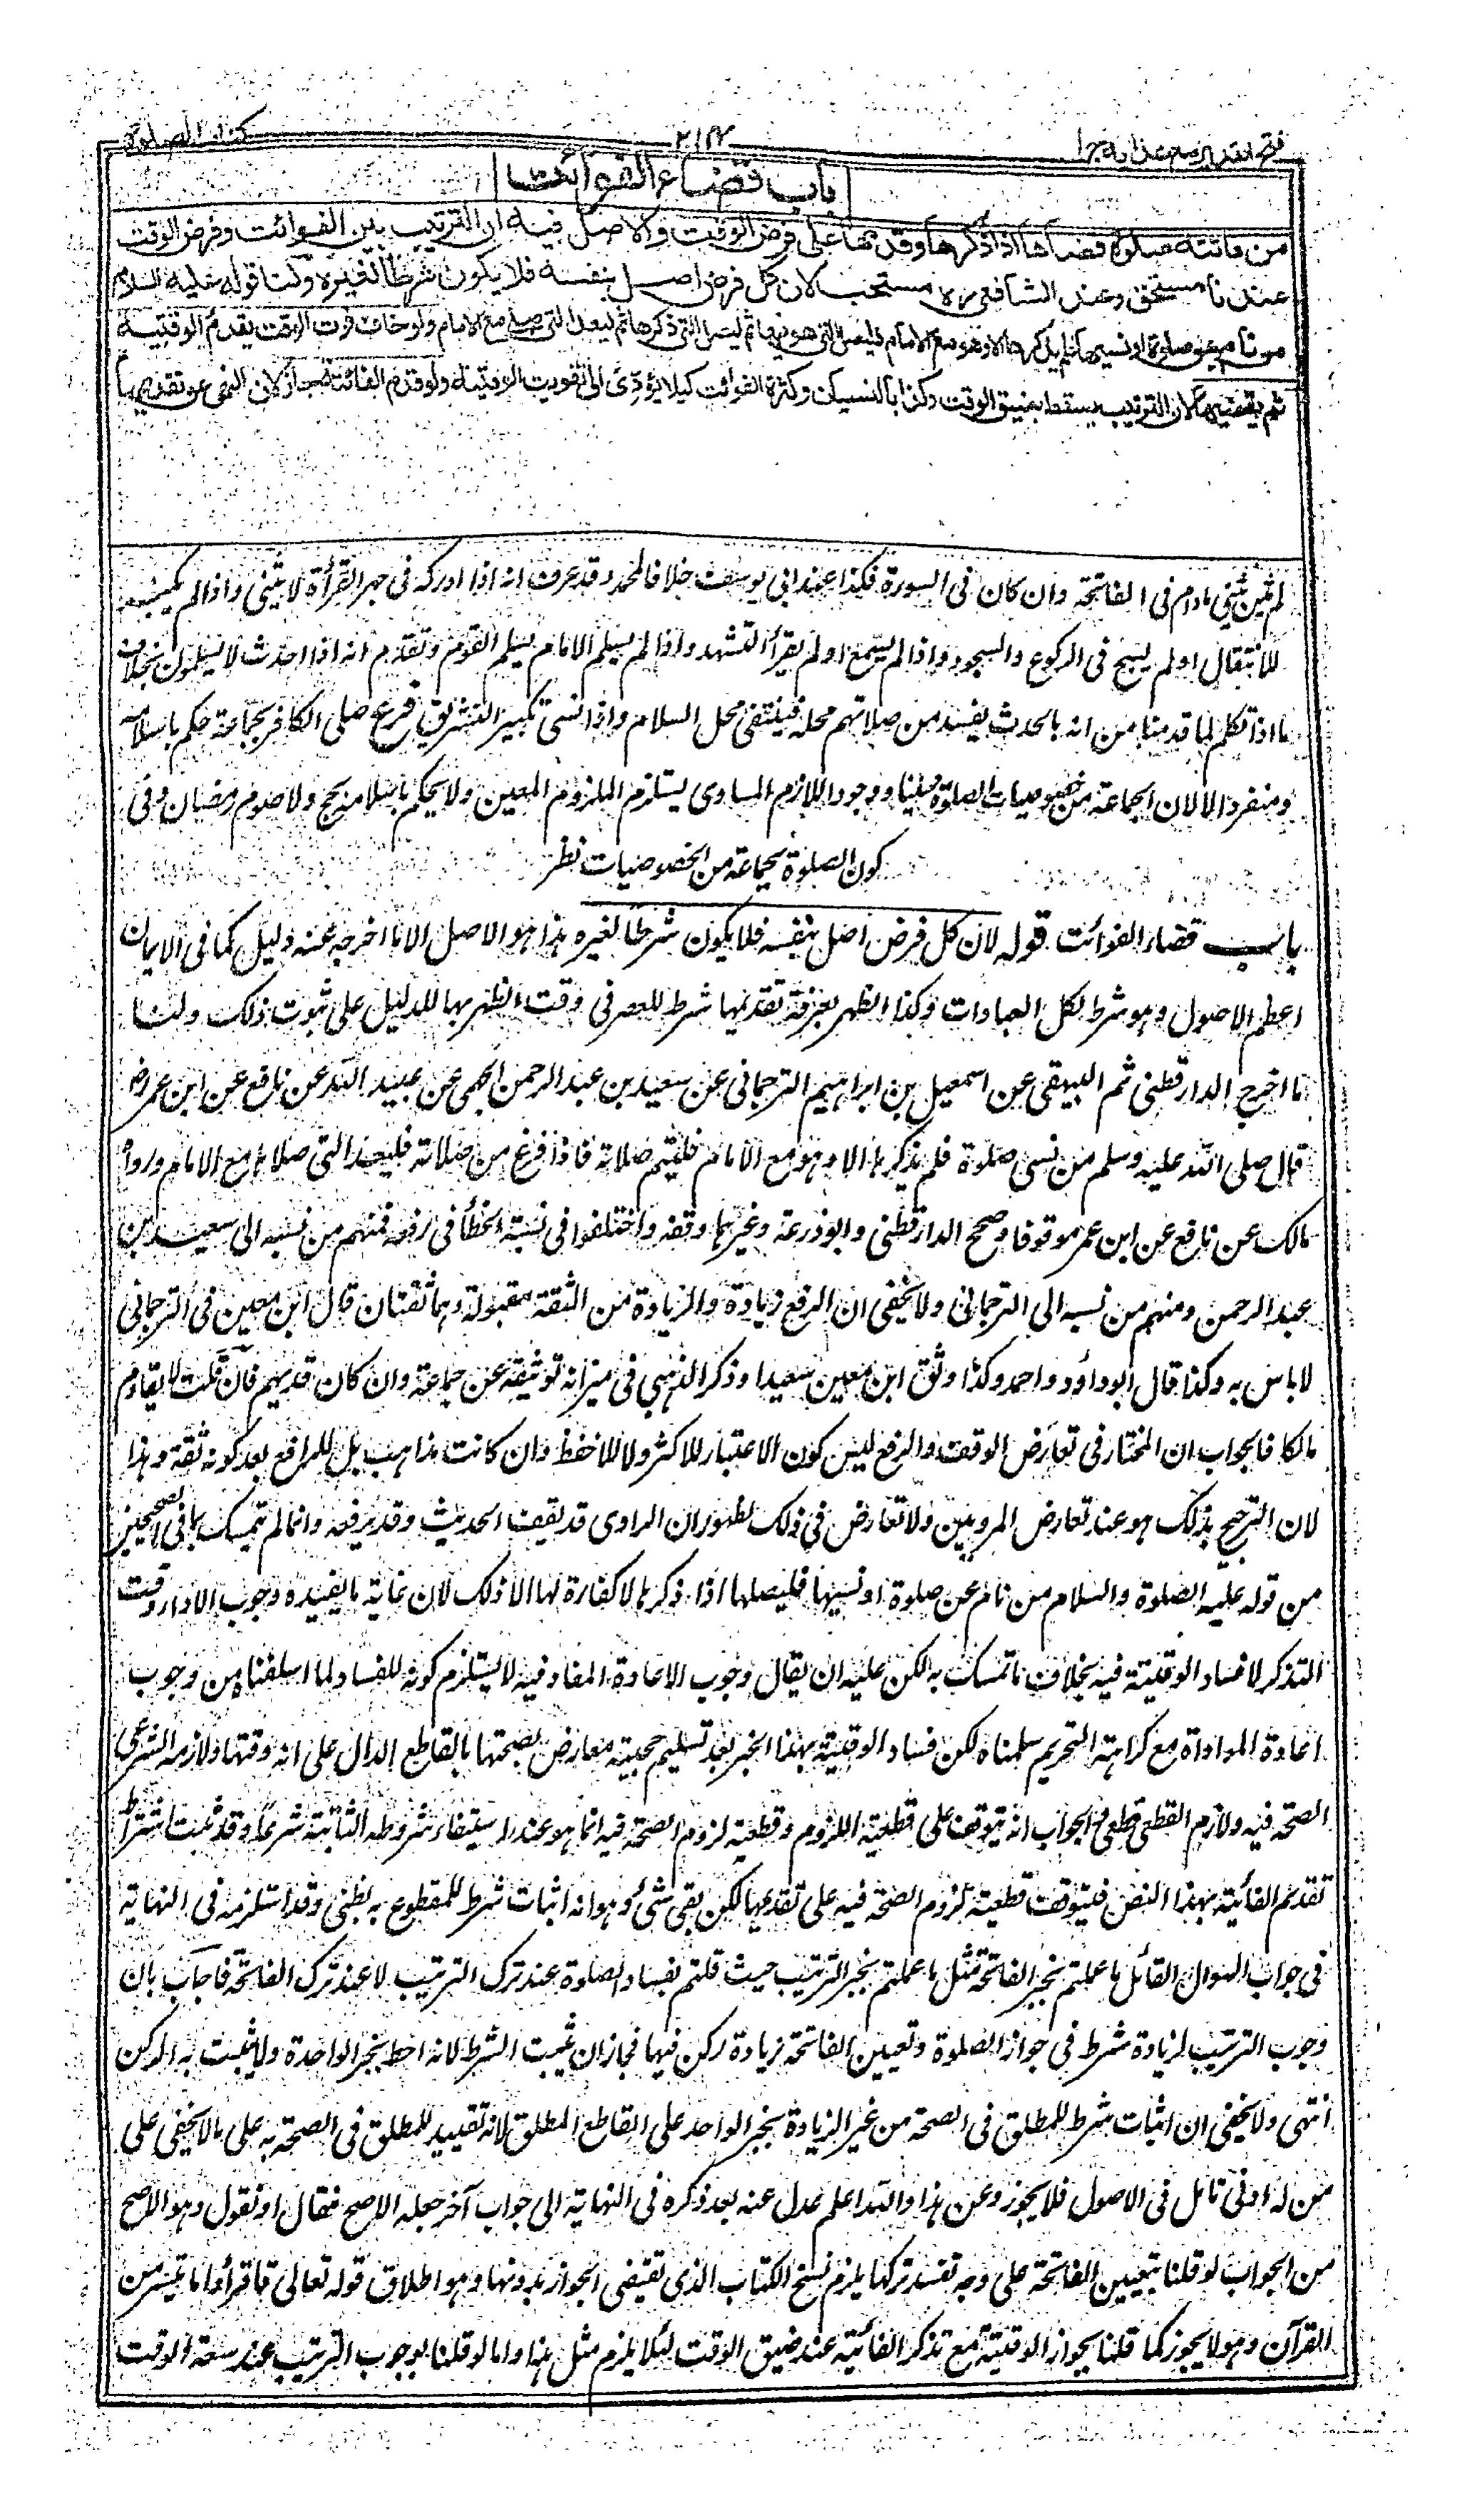 فتح القدير مع هدايه ج ا
٢١٢
كتاب الصلوة
باب قضاء الفوائت
من فاتته صلوة قضاها اذا ذكرها وقدمها على فرض الوقت والاصل فيه ان الترتيب بين الفوائت وفرض الوقت
عندنا مستحق وعند الشافعي ره مستحب لان كل فرض اصل بنفسه فلا يكون شرطا لغيره ولنا قوله عليه السلام
من نام عن صلوة او نسيها فلم يذكرها الا وهو مع الامام فليصل التي هو فيها ثم ليصل التي ذكرها ثم ليعد التي صلى مع الامام ولو خاف فوت الوقت يقدم الوقتية
ثم يقضيها لان الترتيب يسقط بضيق الوقت وكذا بالنسيان وكثرة الفوائت كيلا يؤدي الى تفويت الوقتية ولو قدم الفائتة جاز لان النهي عن تقديمها
لم يثن يثني مادام في الفاتحة وان كان في السورة فكذا عند ابي يوسف خلافا لمحمد وقد عرف انه اذا ادركه في جهر القرأة لا يثني واذا لم يكبر
للانتقال او لم يسبح في الركوع والسجود واذا لم يسمع او لم يقرأ التشهد واذا لم يسلم الامام يسلم القوم وتقدم انه اذا احدث لا يسلمون بخلاف
ما اذا تكلم لما قدمنا من انه بالحدث يفسد من صلاتهم محله فينتفي محل السلام واذا نسي تكبير التشريق فرع صلى الكافر بجماعة حكم باسلامه
ومنفردا لا لان الجماعة من خصوصيات الصلوة بيننا ووجود اللازم المساوى يستلزم الملزوم المعين ولا يحكم باسلامه بحج ولا صوم رمضان وفي
كون الصلوة بجماعة من الخصوصيات نظر
باب قضاء الفوائت قوله لان كل فرض اصل بنفسه فلا يكون شرطا لغيره هذا هو الاصل الا ما اخرجه عنه دليل كما في الايمان
اعظم الاصول وهو شرط لكل العبادات وكذا الظهر بعرفة تقديمها شرط للعصر في وقت الظهر بها للدليل على ثبوت ذلك ولنا
ما اخرج الدارقطني ثم البيهقي عن اسمعيل بن ابراهيم الترجماني عن سعيد بن عبد الرحمن الجمحي عن عبيد الله عن نافع عن ابن عمر رض
قال صلى الله عليه وسلم من نسى صلوة فلم يذكرها الا وهو مع الامام فليتم صلاته فاذا فرغ من صلاته فليعد التي صلاها مع الامام ورواه
مالك عن نافع عن ابن عمر موقوفا وصحح الدارقطني وابو ذرعة وغيرهما وقفه واختلفوا في نسبة الخطأ في رفعه فمنهم من نسبه الى سعيد بن
عبد الرحمن ومنهم من نسبه الى الترجماني ولا يخفى ان الرفع زيادة والزيادة من الثقة مقبولة وهما ثقتان قال ابن معين في الترجماني
لا باس به وكذا قال ابو داؤد واحمد وكذا وثق ابن معين سعيدا وذكر الذهبي في ميزانه توثيقه عن جماعة وان كان قد يهم فان قلت لا يقاوم
مالكا فالجواب ان المختار في تعارض الوقف والرفع ليس كون الاعتبار للاكثر ولا للاحفظ وان كانت مذاهب بل للرافع بعد كونه ثقة وهذا
لان الترجيح بذلك هو عند تعارض المرويين ولا تعارض في ذلك لظهور ان الراوى قد يقف الحديث وقد يرفعه وانما لم يتمسك بما في الصحيحين
من قوله عليه الصلوة والسلام من نام عن صلوة او نسيها فليصلها اذا ذكرها لا كفارة لها الا ذلك لان غاية ما يفيده وجوب الاداء وقت
التذكر لا فساد الوقتية فيه بخلاف ما تمسك به لكن عليه ان يقال وجوب الاعادة المفاد فيه لا يستلزم كونه للفساد لما اسلفناه من وجوب
اعادة المؤداة مع كراهة التحريم سلمناه لكن فساد الوقتية بهذا الخبر بعد تسليم حجيته معارض بصحتها بالقاطع الدال على انه وقتها ولازمه الشرعي
الصحة فيه ولازم القطعي قطعي والجواب انه يتوقف على قطعية اللزوم وقطعية لزوم الصحة فيه انما هو عند استيفاء شروطه الثابتة شرعا وقد ثبت اشتراط
تقديم الفائتة بهذا النص فيتوقف قطعية لزوم الصحة فيه على تقديمها لكن بقي شئ وهو انه اثبات شرط للمقطوع به بظني وقد استلزمه في النهاية
في جواب السوال القائل ما عملتم بخبر الفاتحة مثل ما عملتم بخبر الترتيب حيث قلتم بفساد الصلوة عند ترك الترتيب لا عند ترك الفاتحة فاجاب بان
وجوب الترتيب لزيادة شرط في جواز الصلوة وتعيين الفاتحة زيادة ركن فيها فجاز ان يثبت الشرط لانه احط بخبر الواحدة ولا يثبت به الركن
انتهى ولا يخفى ان اثبات شرط للمطلق في الصحة من غير الزيادة بخبر الواحد على القاطع المطلق لانه تقييد للمطلق في الصحة به على مالا يخفى على
من له ادنى تامل في الاصول فلا يجوز وعن هذا والله اعلم عدل عنه بعد ذكره في النهاية الى جواب آخر جعله الاصح فقال او نقول وهو الاصح
من الجواب لو قلنا بتعيين الفاتحة على وجه تفسد تركها يلزم نسخ الكتاب الذى يقتضى الجواز بدونها وهو اطلاق قوله تعالى فاقرأوا ما تيسر من
القرآن وهو لا يجوز كما قلنا بجواز الوقتية مع تذكر الفائتة عند ضيق الوقت لئلا يلزم مثل هذا واما لو قلنا بوجوب الترتيب عند سعة الوقت